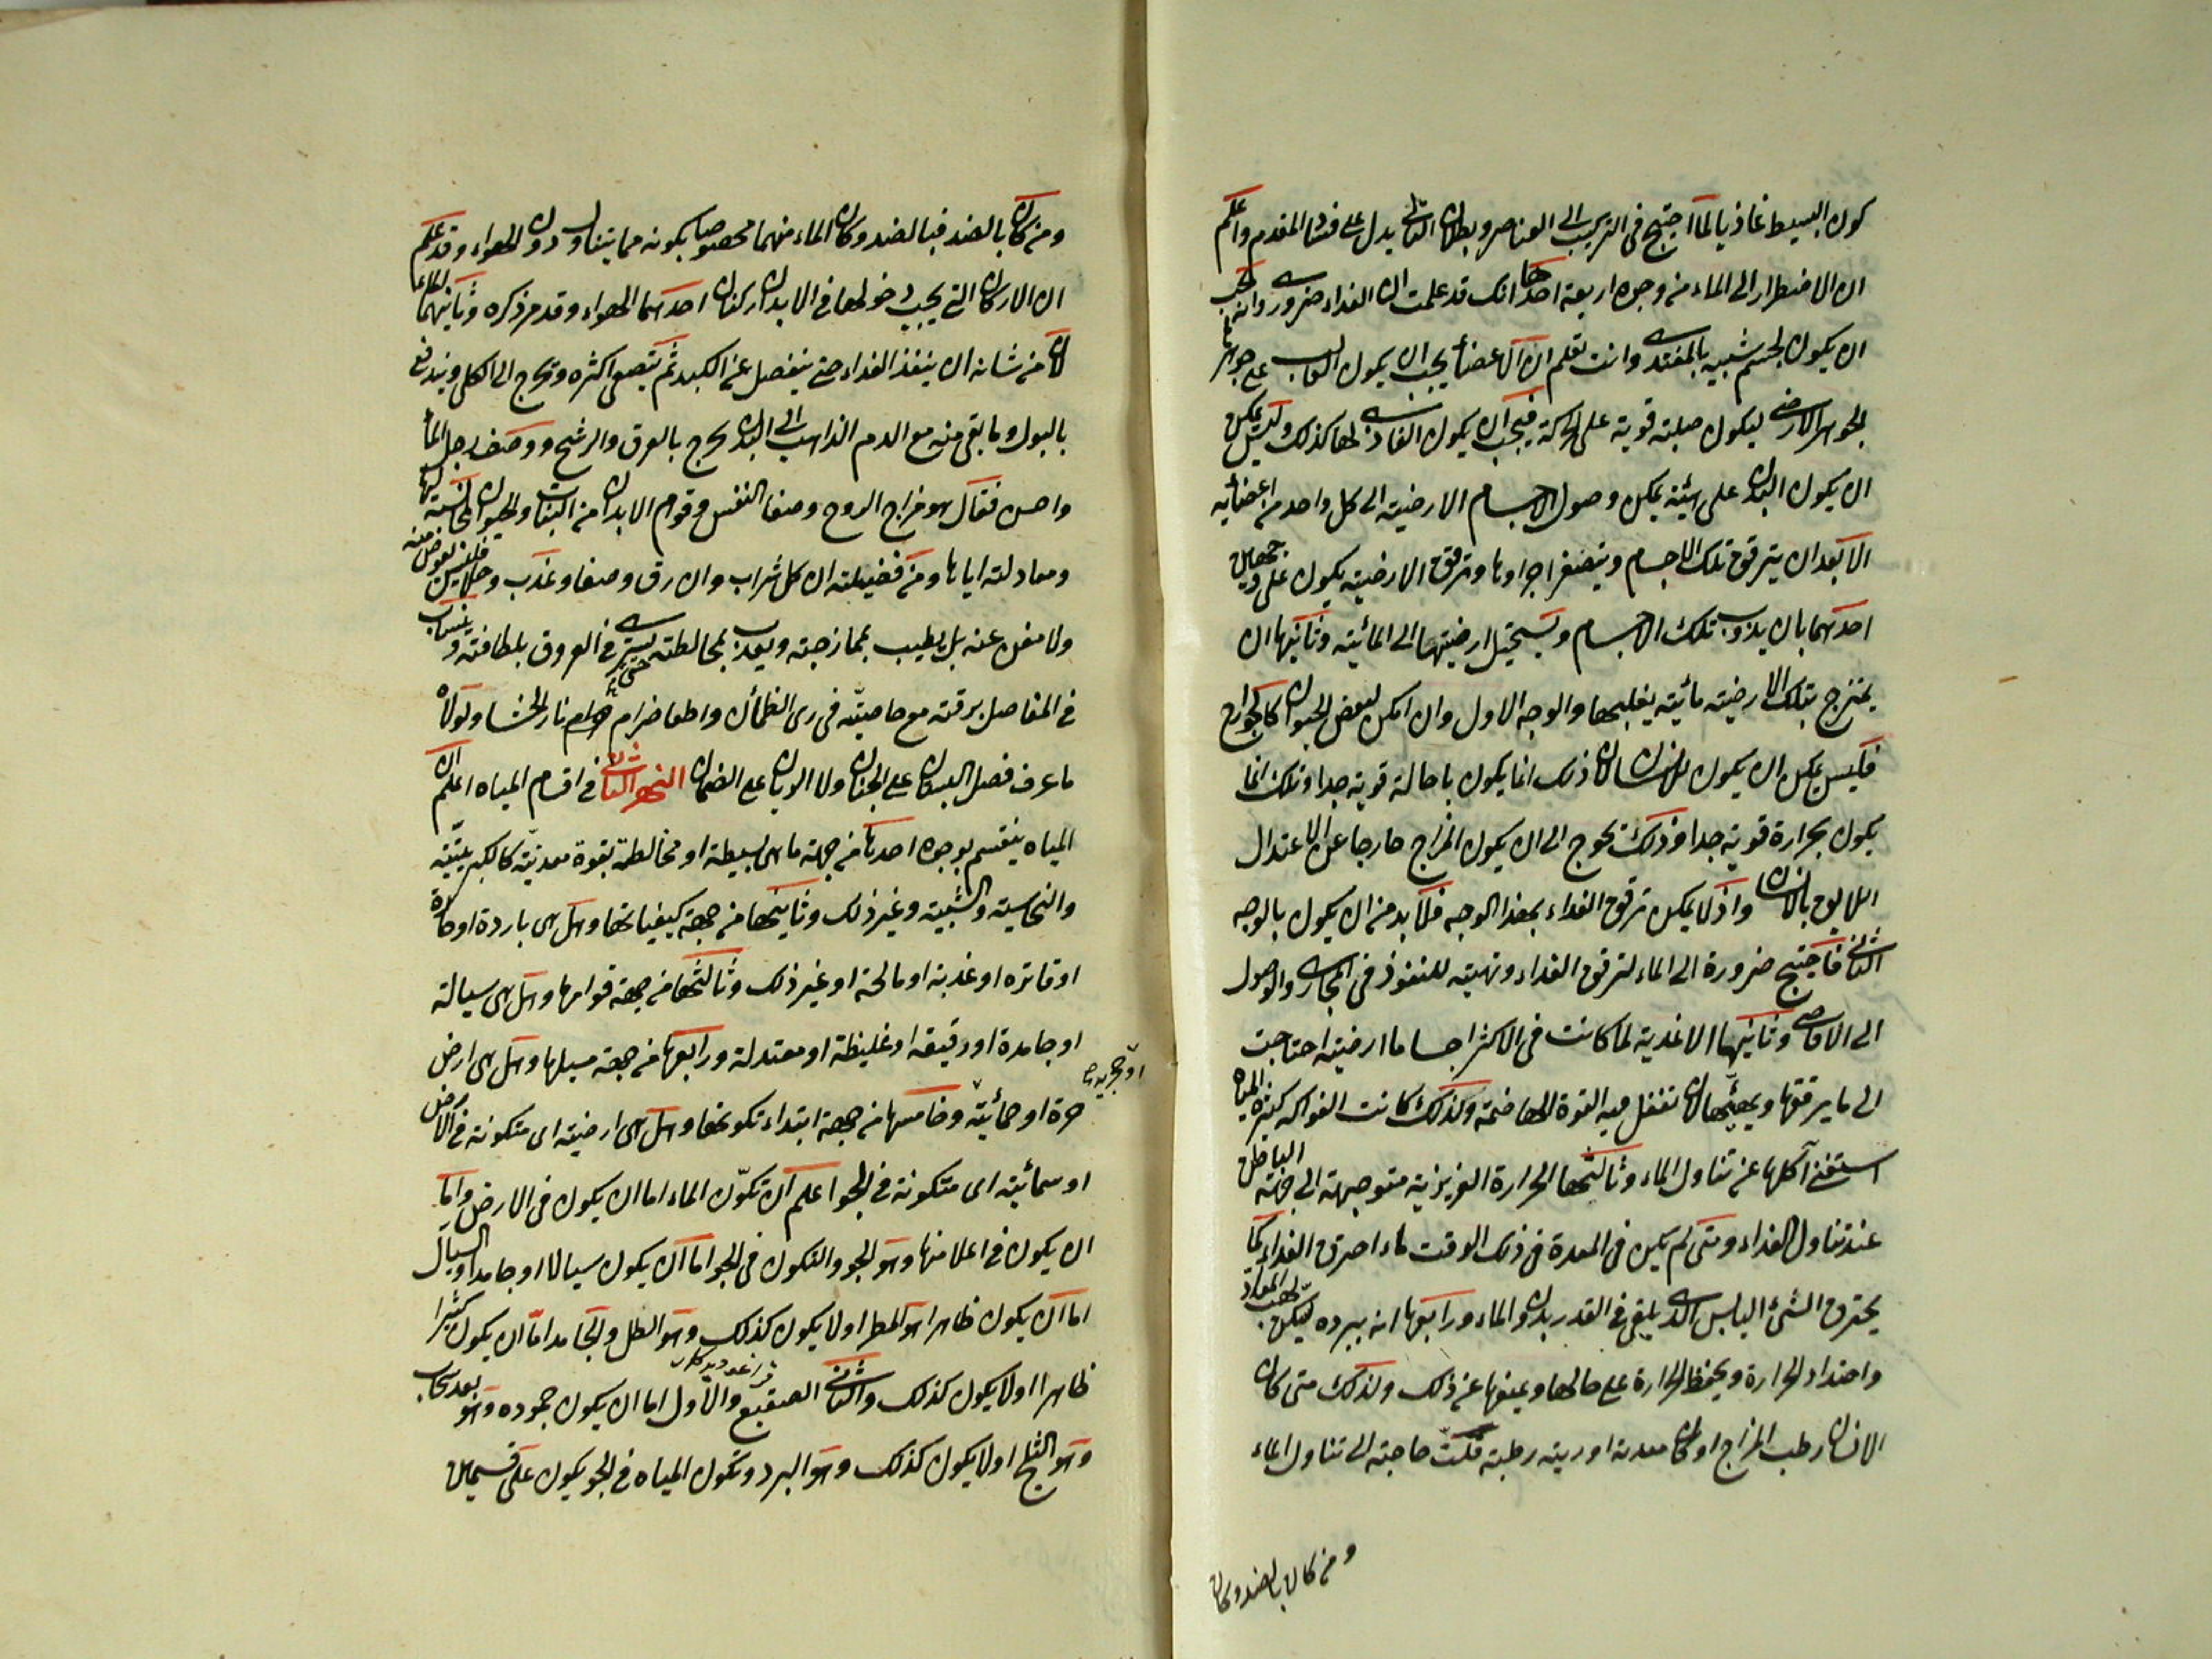 كون البسيط غاذيا لما احتيج في التركيب الى العناصر وبطلان التالي يدل على فساد المقدم واعلم
ان الاضطرار الى الماء من وجوه اربعة احدها انك قد علمت ان الغذاء ضروري وانه يجب
ان يكون لجسم شبيه بالمغتذي وانت تعلم ان الاعضاء يجب ان يكون الغالب على جوهرها
الجوهر الارضي ليكون صلبة قوية على الحركة فيجب ان يكون الغاذي لها كذلك وليس يمكن
ان يكون البدن على هيئة يمكن وصول الاجسام الارضية الى كل واحد من اعضائه
الا بعد ان يترقق تلك الاجسام ويتصغر اجزاوها وترقق الارضية يكون على وجهين
احدهما بان يذوب تلك الاجسام ويستحيل ارضيتها الى المائية وثانيها ان
يمتزج بتلك الارضية مائية يغلبها والوجه الاول وان امكن لبعض الحيوان كالجوارح
فليس يمكن ان يكون للانسان لان ذلك انما يكون باحالة قوية جدا وتلك انما
يكون بحرارة قوية جدا وذلك يحوج الى ان يكون المزاج خارجا عن الاعتدال
اللايق بالانسان واذ لا يمكن ترقق الغذاء بهذا الوجه فلا بد من ان يكون بالوجه
الثاني فاحتيج ضرورة الى الماء لترقق الغذاء وتهيئه للنفوذ في المجاري والوصول
الى الاقاصي وثانيها الاغذية لما كانت في الاكثر اجساما ارضية احتاجت
الى ما يرققها ويهيئها لان تفعل فيه القوة الهاضمة وكذلك كانت الفواكه كثيرة المياه
استغنى آكلها عن تناول الماء وثالثها الحرارة الغريزية متوجهة الى جهة الباطن
عند تناول الغذاء ومتى لم يكن في المعدة في ذلك الوقت ماء احترق الغذاء كما
يحترق الشئ اليابس الذي يلقى في القدر بدون الماء ورابعها انه ببرده يسكن لهب المعدة
واحتداد الحرارة ويحفظ الحرارة على حالها ويمنعها عن ذلك ولذلك متى كان
الانسان رطب المزاج او كان معدته او ريته رطبة قلت حاجته الى تناول الماء
ومن كان بالضد وكان
ومن كان بالضد فبالضد وكان الماء منهما مخصوصا بكونه مما يتناول دون الهواء وقد علم
ان الاركان التي يجب دخولها في الابدان ركنان احدهما الهواء وقد مر ذكره وثانيهما الماء
لان من شانه ان ينفذ الغذاء حتى ينفصل عن الكبد ثم يتصفى اكثره ويخرج الى الكلى ويندفع
بالبول وما بقى منه مع الدم الذاهب الى البدن يخرج بالعرق والرشح ووصف رجل الماء
واحسن فقال هو مزاج الروح وصفا النفس وقوام الابدان من النبات والحيوان
ومعادلته اياها ومن فضيلته ان كل شراب وان رق وصفا وعذب وحلا فليس بعوض منه
ولا مغن عنه بل يطيب بممازجته ويعذب بمخالطته حتى يسري في العروق بلطافته وينساب
في المفاصل برقته مع خاصيته في رى الظمأن واطفا ضرام نار الحشا ولولاه
ما عرف فضل البستان على الجنان ولا الريان على الضمان النهر الثاني في اقسام المياه اعلم ان
المياه ينقسم بوجوه احدها من جهة ما هى بسيطة او مخالطة بقوة معدنية كالكبريتية
والنحاسية والشبية وغير ذلك وثانيها من جهة كيفياتها وهل هى باردة او حارة
او فاتره او عذبة او مالحة او غير ذلك وثالثها من جهة قوامها وهل هى سيالة
او جامدة او رقيقة او غليظة او معتدلة ورابعها من جهة مسيلها وهل هى ارض
حرة او حمائية وخامسها من جهة ابتداء تكونها وهل هى ارضية اى متكونة في الارض
او سمائية اى متكونة في الجو اعلم ان تكون الماء اما ان يكون في الارض واما
ان يكون في اعلا منها وهو الجو والتكون في الجو اما ان يكون سيالا او جامدا والسيال
اما ان يكون ظاهرا وهو المطر او لا يكون كذلك وهو الطل والجامد اما ان يكون كثيرا
ظاهرا او لا يكون كذلك والثاني الصقيع والاول اما ان يكون جموده وهو بعد سحاب
وهو الثلج او لا يكون كذلك وهو البرد وتكون المياه في الجو يكون على قسمين